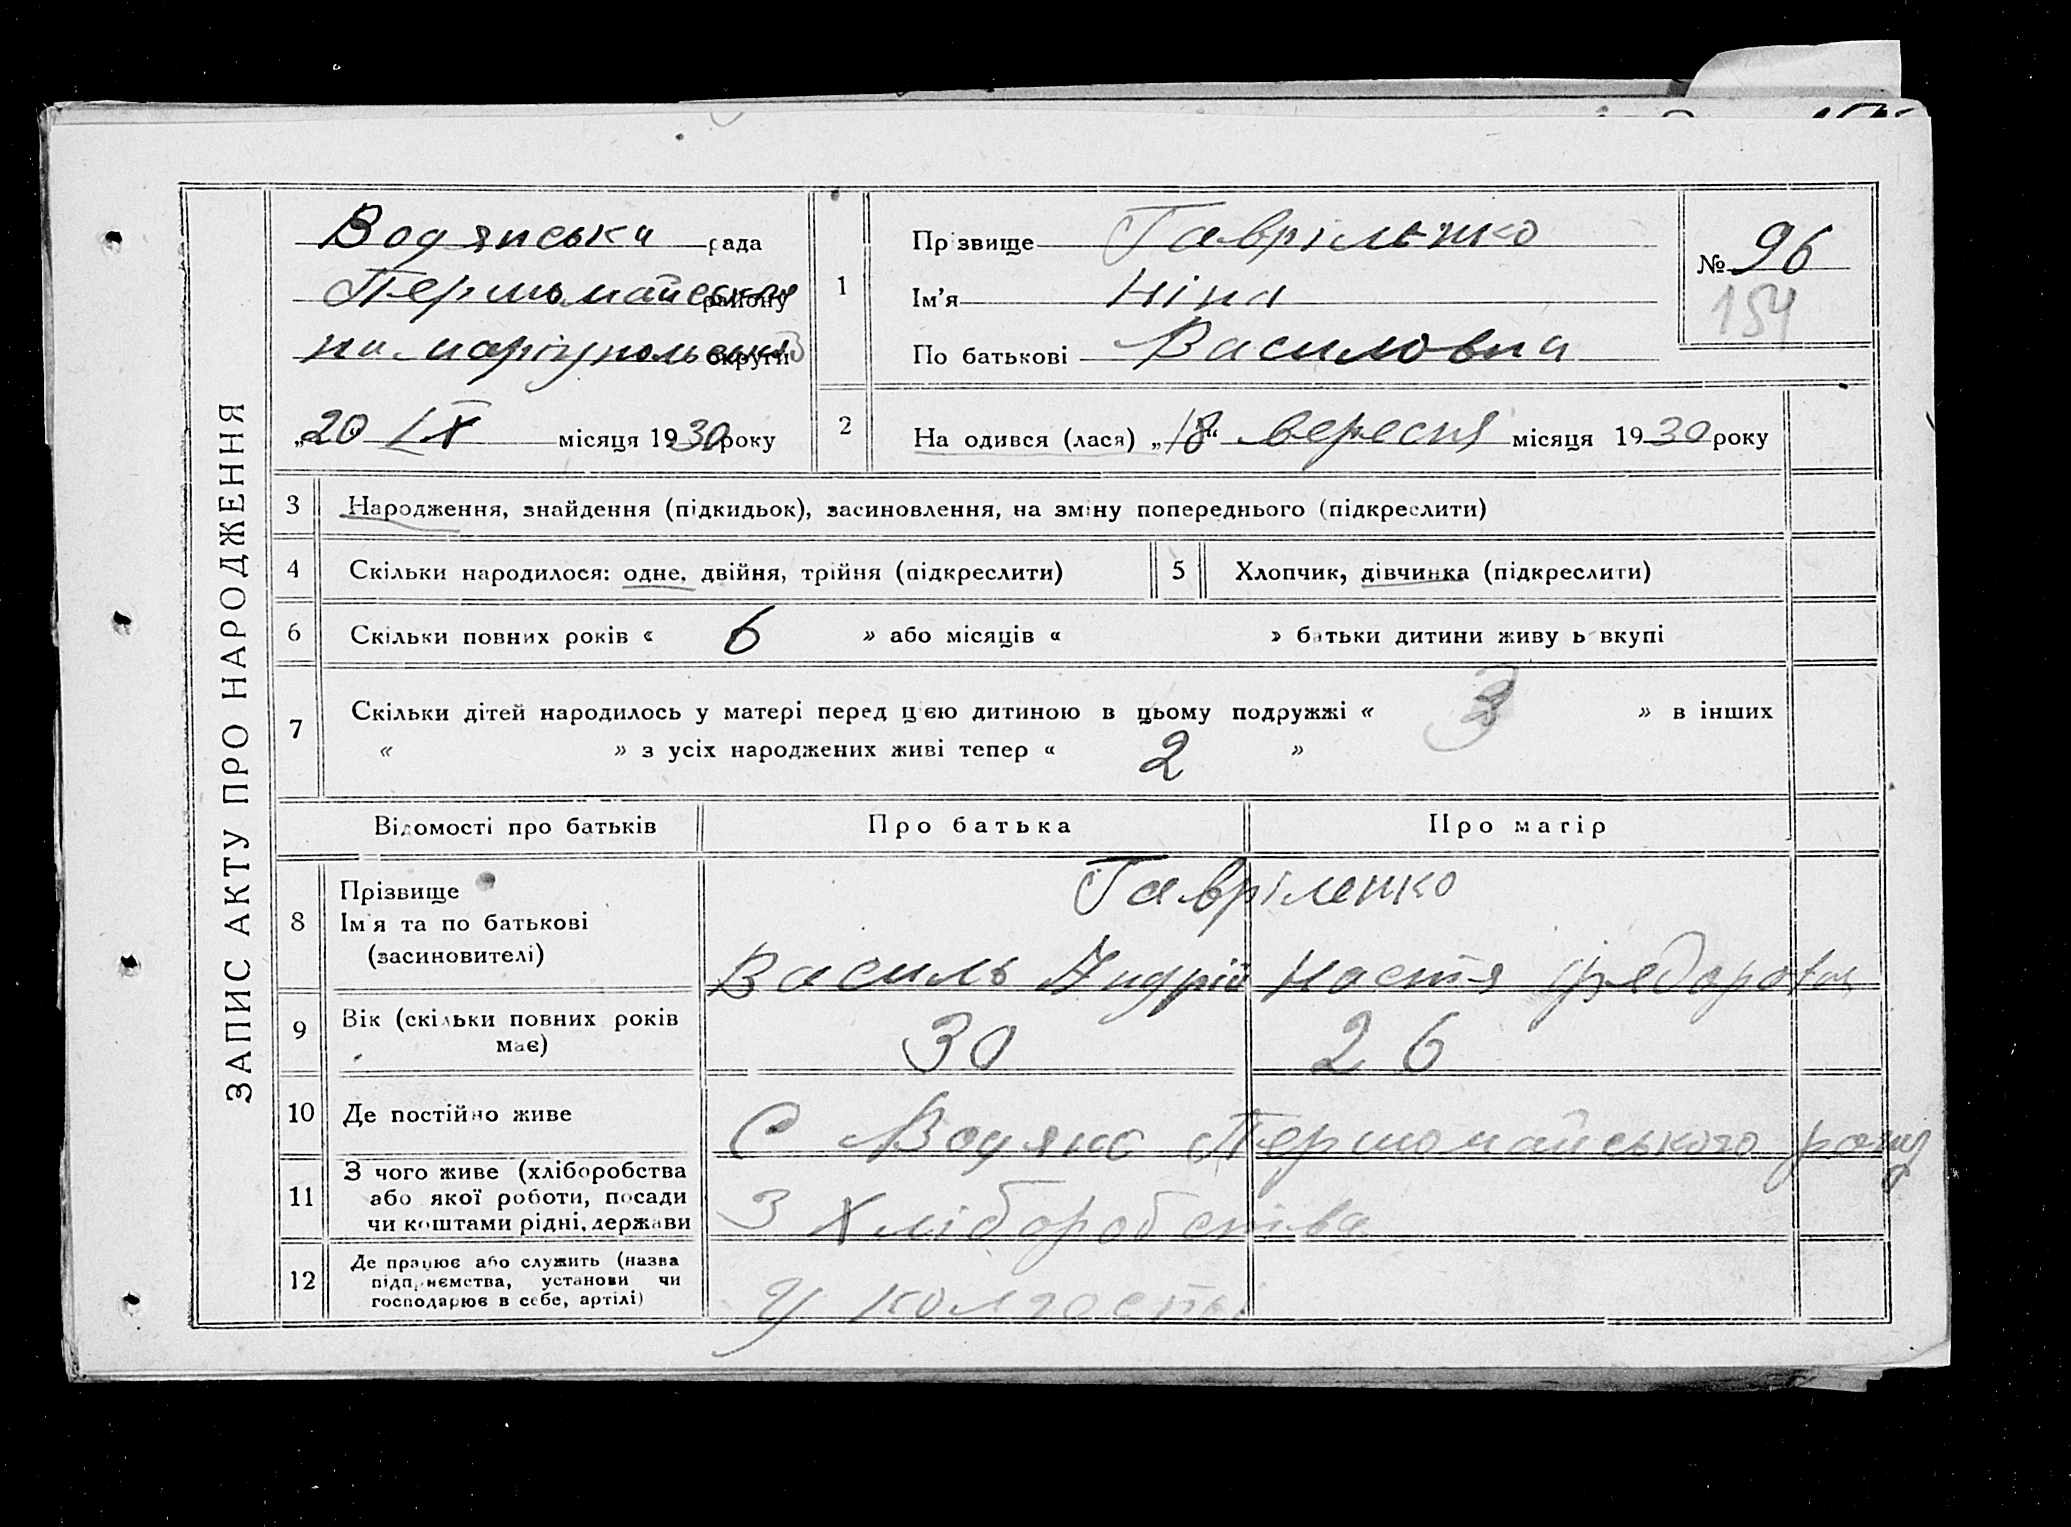 ЗАПИС АКТУ ПРО НАРОДЖЕННЯ
Водянська рада
Першомайського району
на Маріупольській округи
„20“ IX місяця 1930 року
1
Прізвище Гаврільэнко
Ім'я Ніна
По батькові Василовна
№ 96
154
2
На одився (лася) „18“ вересня місяця 1930 року
3 Народження, знайдення (підкидьок), засиновлення, на зміну попереднього (підкреслити)
4 Скільки народилося: одне, двійня, трійня (підкреслити) 5 Хлопчик, дівчинка (підкреслити)
6 Скільки повних років « 6 » або місяців « » батьки дитини живу ь вкупі
7 Скільки дітей народилось у матері перед цією дитиною в цьому подружжі « 3 » в інших
« » з усіх народжених живі тепер « 2 »
Відомості про батьків Про батька Про матір
8 Прізвище
Ім'я та по батькові
(засиновителі)
Гавріленко
Василь Андрій Настя Фядоровна
9 Вік (скільки повних років
має)
30 26
10 Де постійно живе С Водяно Першомайського рону
11 З чого живе (хліборобства
або якої роботи, посади
чи коштами рідні, держави
З Хліборобства
12 Де працює або служить (назва
підприємства, установи чи
господарює в себе, артілі)
У колгоспі